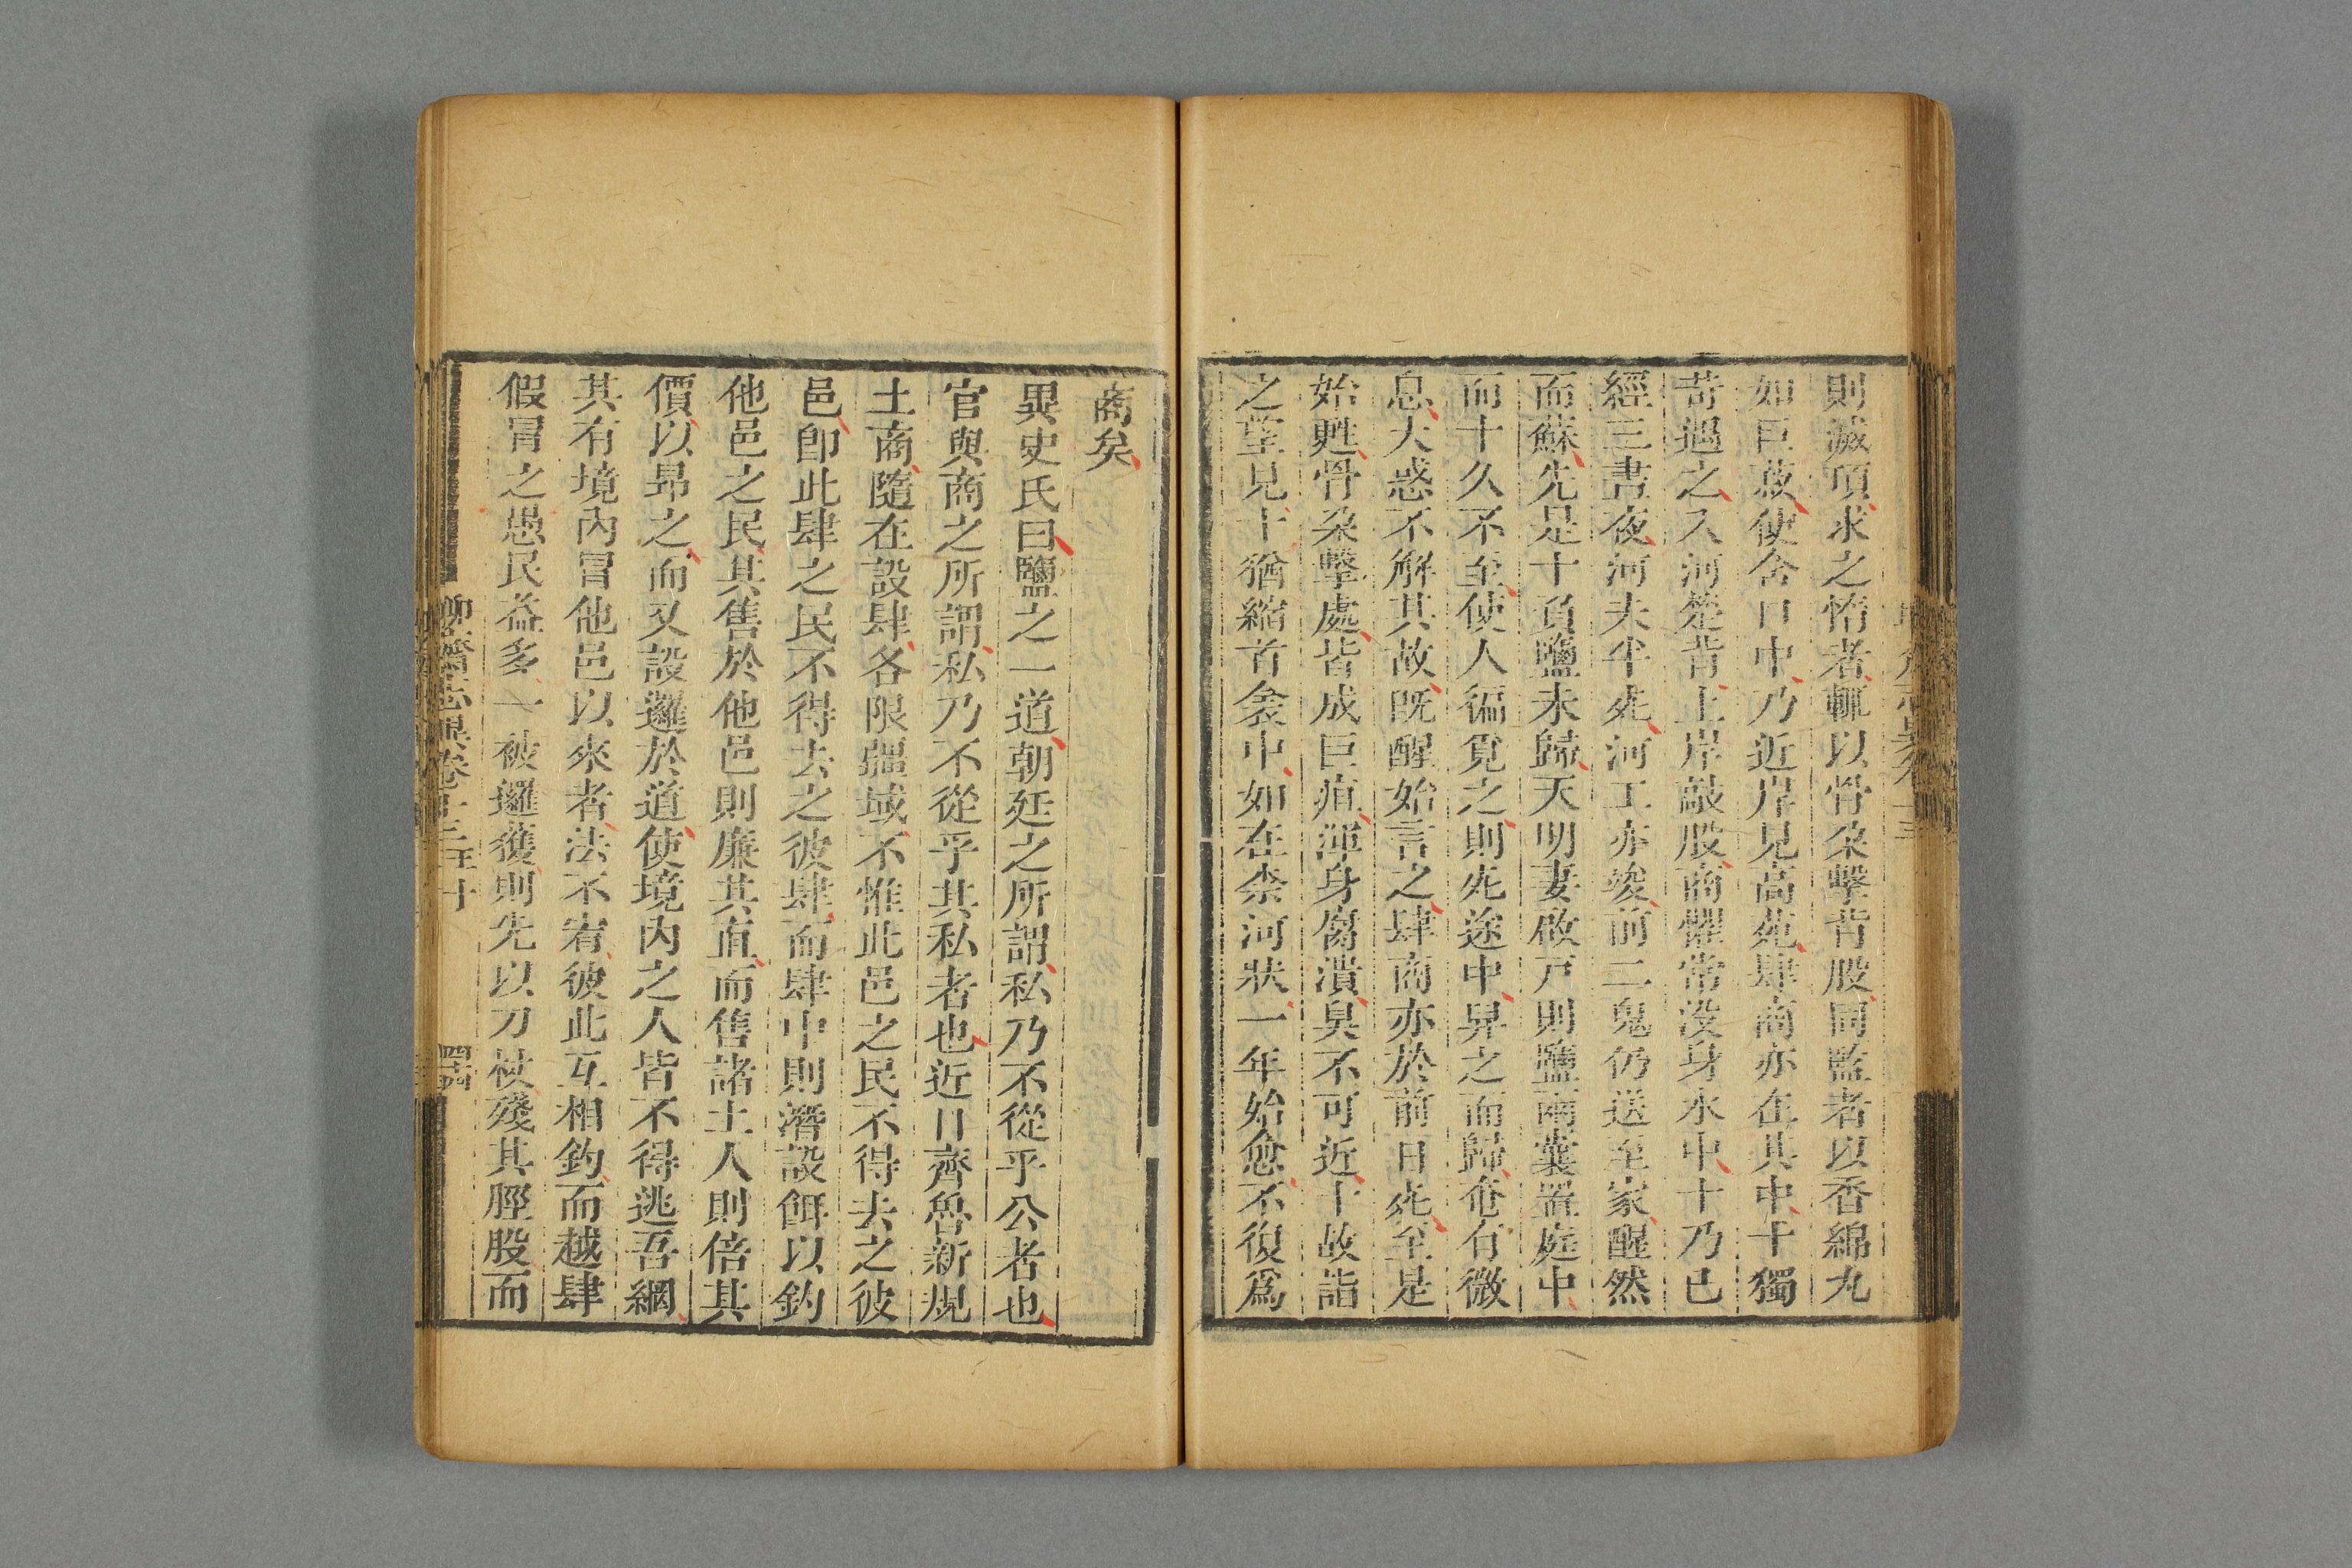 則滅頂求之惰者輒以骨朶擊背股同監者以香綿丸
如巨菽使含口中乃近岸見高苑肆商亦在其中十獨
苛遇之入河楚背上岸敲股商懼常沒身水中十乃已
經三晝夜河夫半死河工亦竣前二鬼仍送至家醒然
而蘇先是十負鹽未歸天明妻啟戸則鹽兩囊置庭中
而十久不至使人徧覓之則死途中舁之而歸奄有微
息大惑不解其故既醒始言之肆商亦於前日死至是
始甦骨朶擊處皆成巨疽渾身腐潰臭不可近十故詣
之望見十猶縮首衾中如在柰河狀一年始愈不復爲
商矣
異史氏曰鹽之一道朝廷之所謂私乃不從乎公者也
官與商之所謂私乃不從乎其私者也近日齊魯新規
土商隨在設肆各限疆域不惟此邑之民不得去之彼
邑卽此肆之民不得去之彼肆而肆中則潛設餌以釣
他邑之民其售於他邑則廉其直而售諸土人則倍其
價以昻之而又設邏於道使境內之人皆不得逃吾網
其有境內冒他邑以來者法不宥彼此互相釣而越肆
假冒之愚民益多一被邏獲則先以刀杖殘其脛股而
聊齋志異卷十三王十